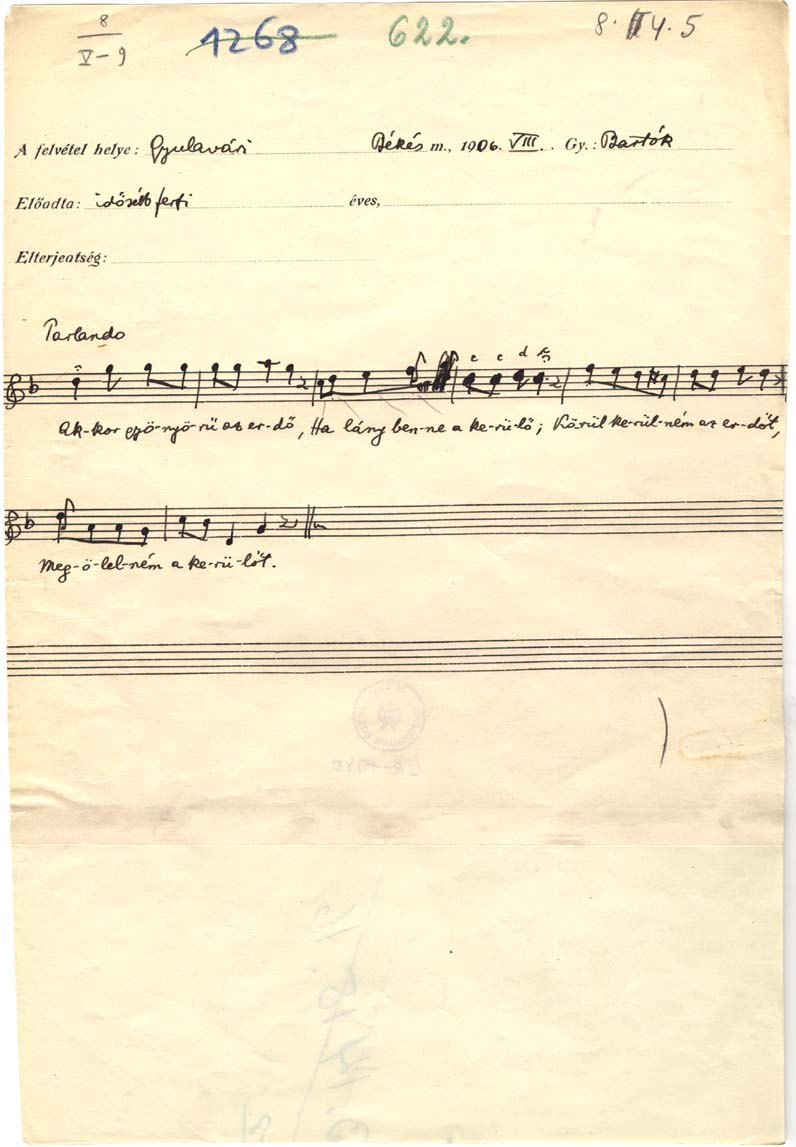 8
V-9
1268
622.
8. II 4. 5
A felvétel helye: Gyulavári Békés m., 1906. VIII. Gy.: Bartók
Előadta: idősebb férfi éves,
Elterjedtség:
Parlando
c c d
Ak-kor gyö-nyö-rű az er-dő, Ha lány ben-ne a ke-rü-lő; Körül ke-rül-ném az er-dőt,
Meg-ö-lel-ném a ke-rü-lőt.